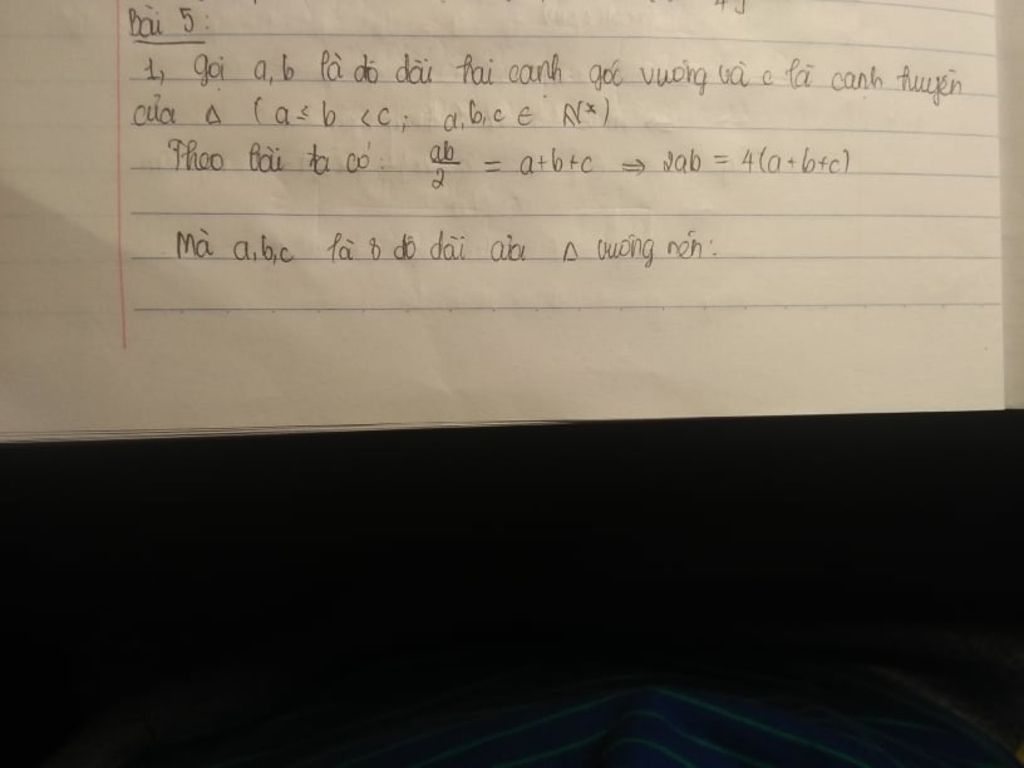 Bài 5:
1, gọi a,b là độ dài hai cạnh góc vuông và c là cạnh huyền
của Δ (a ≤ b < c; a,b,c ∈ N*)
Theo bài ta có: ab/2 = a+b+c ⇒ 2ab = 4(a+b+c)
Mà a,b,c là 3 độ dài của Δ vuông nên: